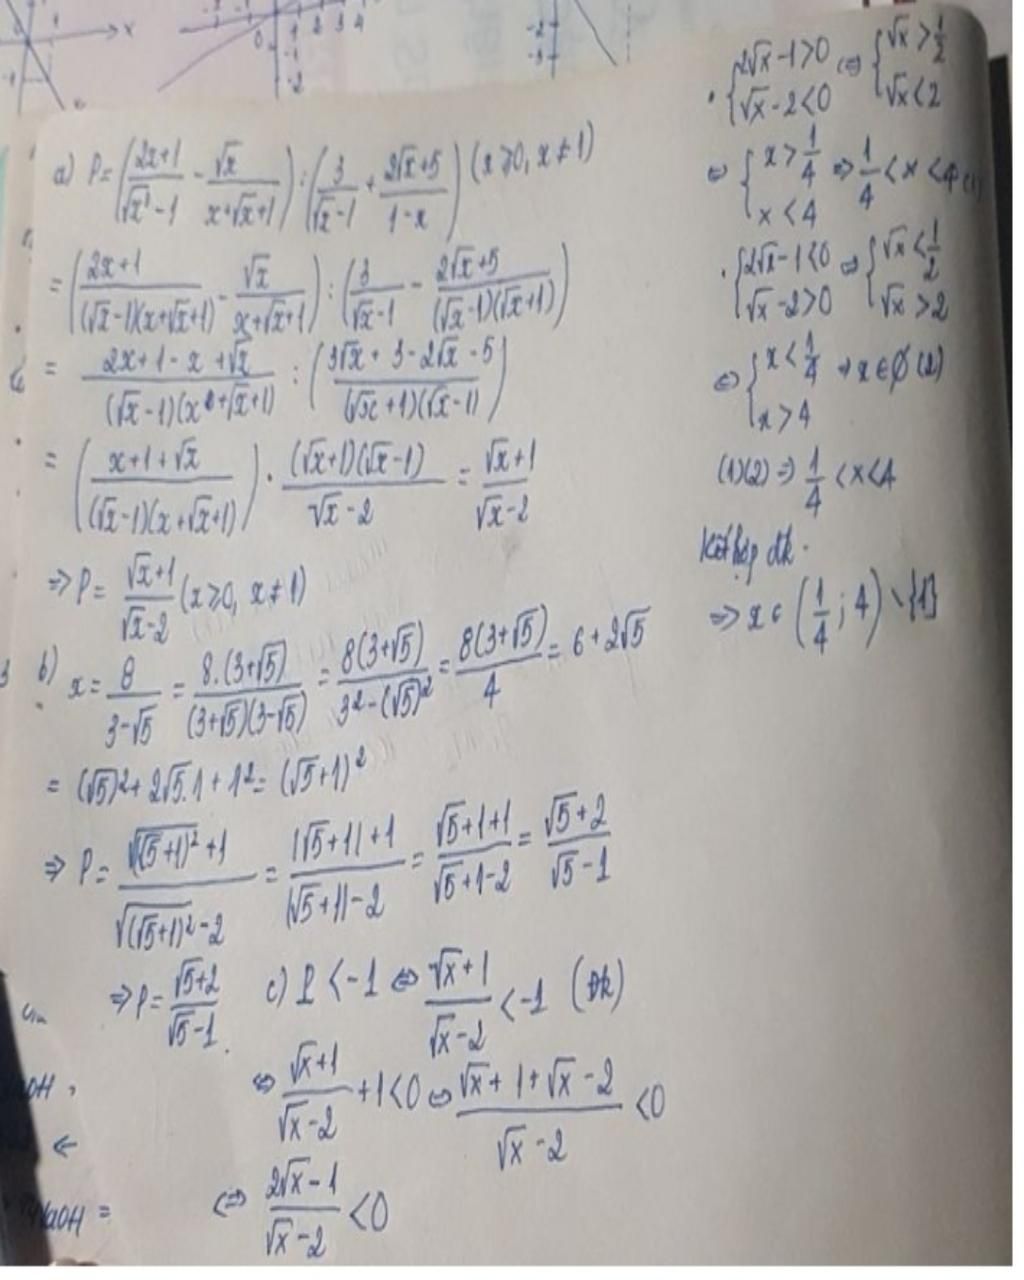 a) P = ((2x+1)/(√x³-1) - √x/(x+√x+1)) : (3/(√x-1) + (2√x+5)/(1-x)) (x≥0, x≠1)
= ((2x+1)/((√x-1)(x+√x+1)) - √x/(x+√x+1)) : (3/(√x-1) - (2√x+5)/((√x-1)(√x+1)))
= (2x+1-x+√x)/((√x-1)(x+√x+1)) : ((3√x+3-2√x-5)/((√x+1)(√x-1)))
= ((x+1+√x)/((√x-1)(x+√x+1))) · ((√x+1)(√x-1))/(√x-2) = (√x+1)/(√x-2)
⇒ P = (√x+1)/(√x-2) (x≥0, x≠1)
b) x = 8/(3-√5) = 8.(3+√5)/((3+√5)(3-√5)) = 8(3+√5)/(3²-(√5)²) = 8(3+√5)/4 = 6+2√5
= (√5)²+2√5.1+1² = (√5+1)²
⇒ P = (√((√5+1)²)+1)/(√((√5+1)²)-2) = (|√5+1|+1)/(|√5+1|-2) = (√5+1+1)/(√5+1-2) = (√5+2)/(√5-1)
⇒ P = (√5+2)/(√5-1).
c) P < -1 ⇔ (√x+1)/(√x-2) < -1 (Đk)
⇔ (√x+1)/(√x-2) + 1 < 0 ⇔ (√x+1+√x-2)/(√x-2) < 0
⇔ (2√x-1)/(√x-2) < 0
· {2√x-1>0; √x-2<0 ⇔ {√x>1/2; √x<2
⇔ {x>1/4; x<4 ⇒ 1/4 < x < 4 (1)
· {2√x-1<0; √x-2>0 ⇔ {√x<1/2; √x>2
⇔ {x<1/4; x>4 ⇒ x∈∅ (2)
(1)(2) ⇒ 1/4 < x < 4
Kết hợp đk.
⇒ x ∈ (1/4; 4) \ {1}
NaOH =